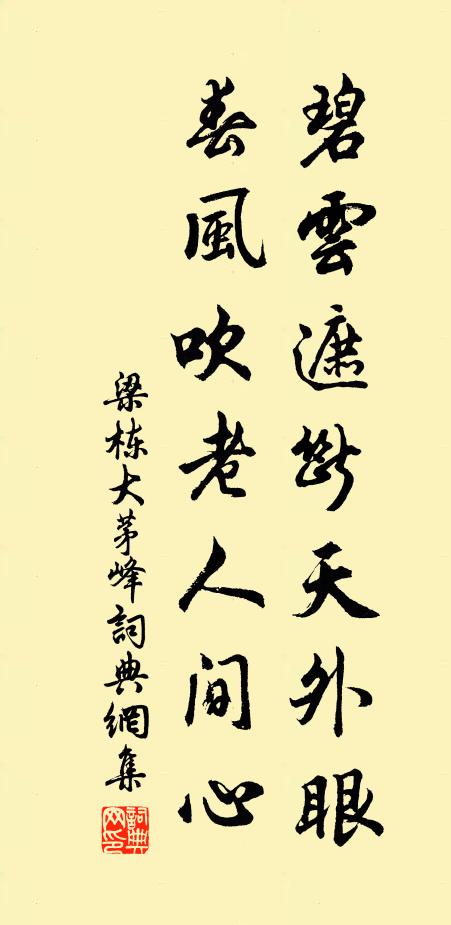 碧雲遮斷天外眼
春風吹老人間心
梁栋大茅峰詞典網集
詞典網印